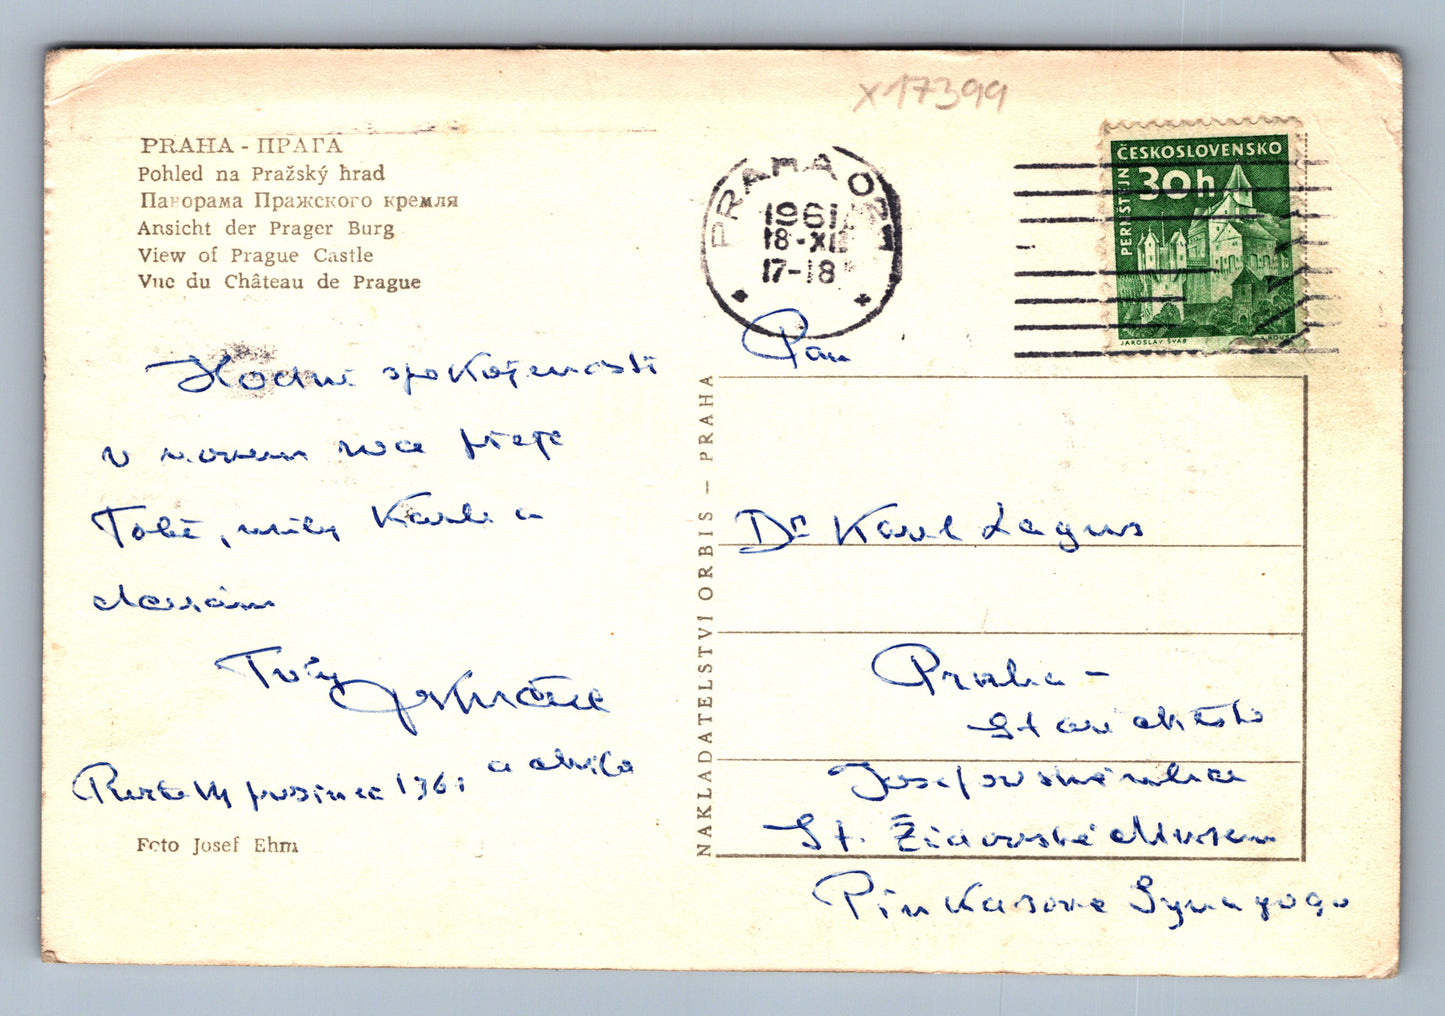 x17399
PRAHA - ПРАГА
Pohled na Pražský hrad
Панорама Пражского кремля
Ansicht der Prager Burg
View of Prague Castle
Vue du Château de Prague
PRAHA
1961
18-XII
17-18
ČESKOSLOVENSKO
30h
PERNŠTEJN
JAROSLAV ŠVÁB
Hodně spokojenosti
v novém roce přeje
Tobě, milý Karle a
Tvůj
prosince 1961
Foto Josef Ehm
NAKLADATELSTVÍ ORBIS – PRAHA
Pan
Dr Karel Lagus
Praha -
Staré město
Josefovská ulice
St. Židovské Museum
Pinkasova Synagoga